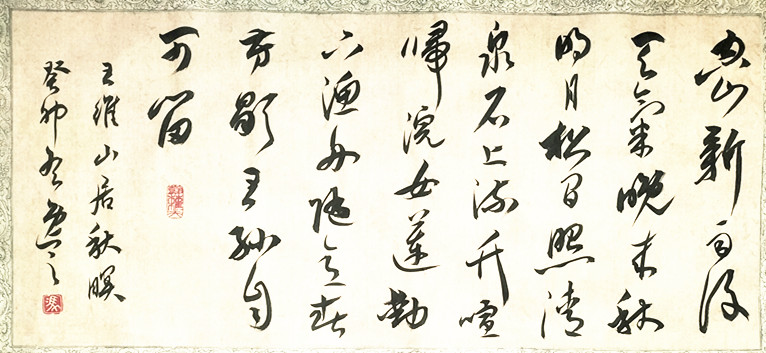 空山新雨後
天氣晚来秋
明月松间照清
泉石上流竹喧
歸浣女蓮動
下漁舟随意春
芳歇王孙自
可留
王維山居秋暝
癸卯冬